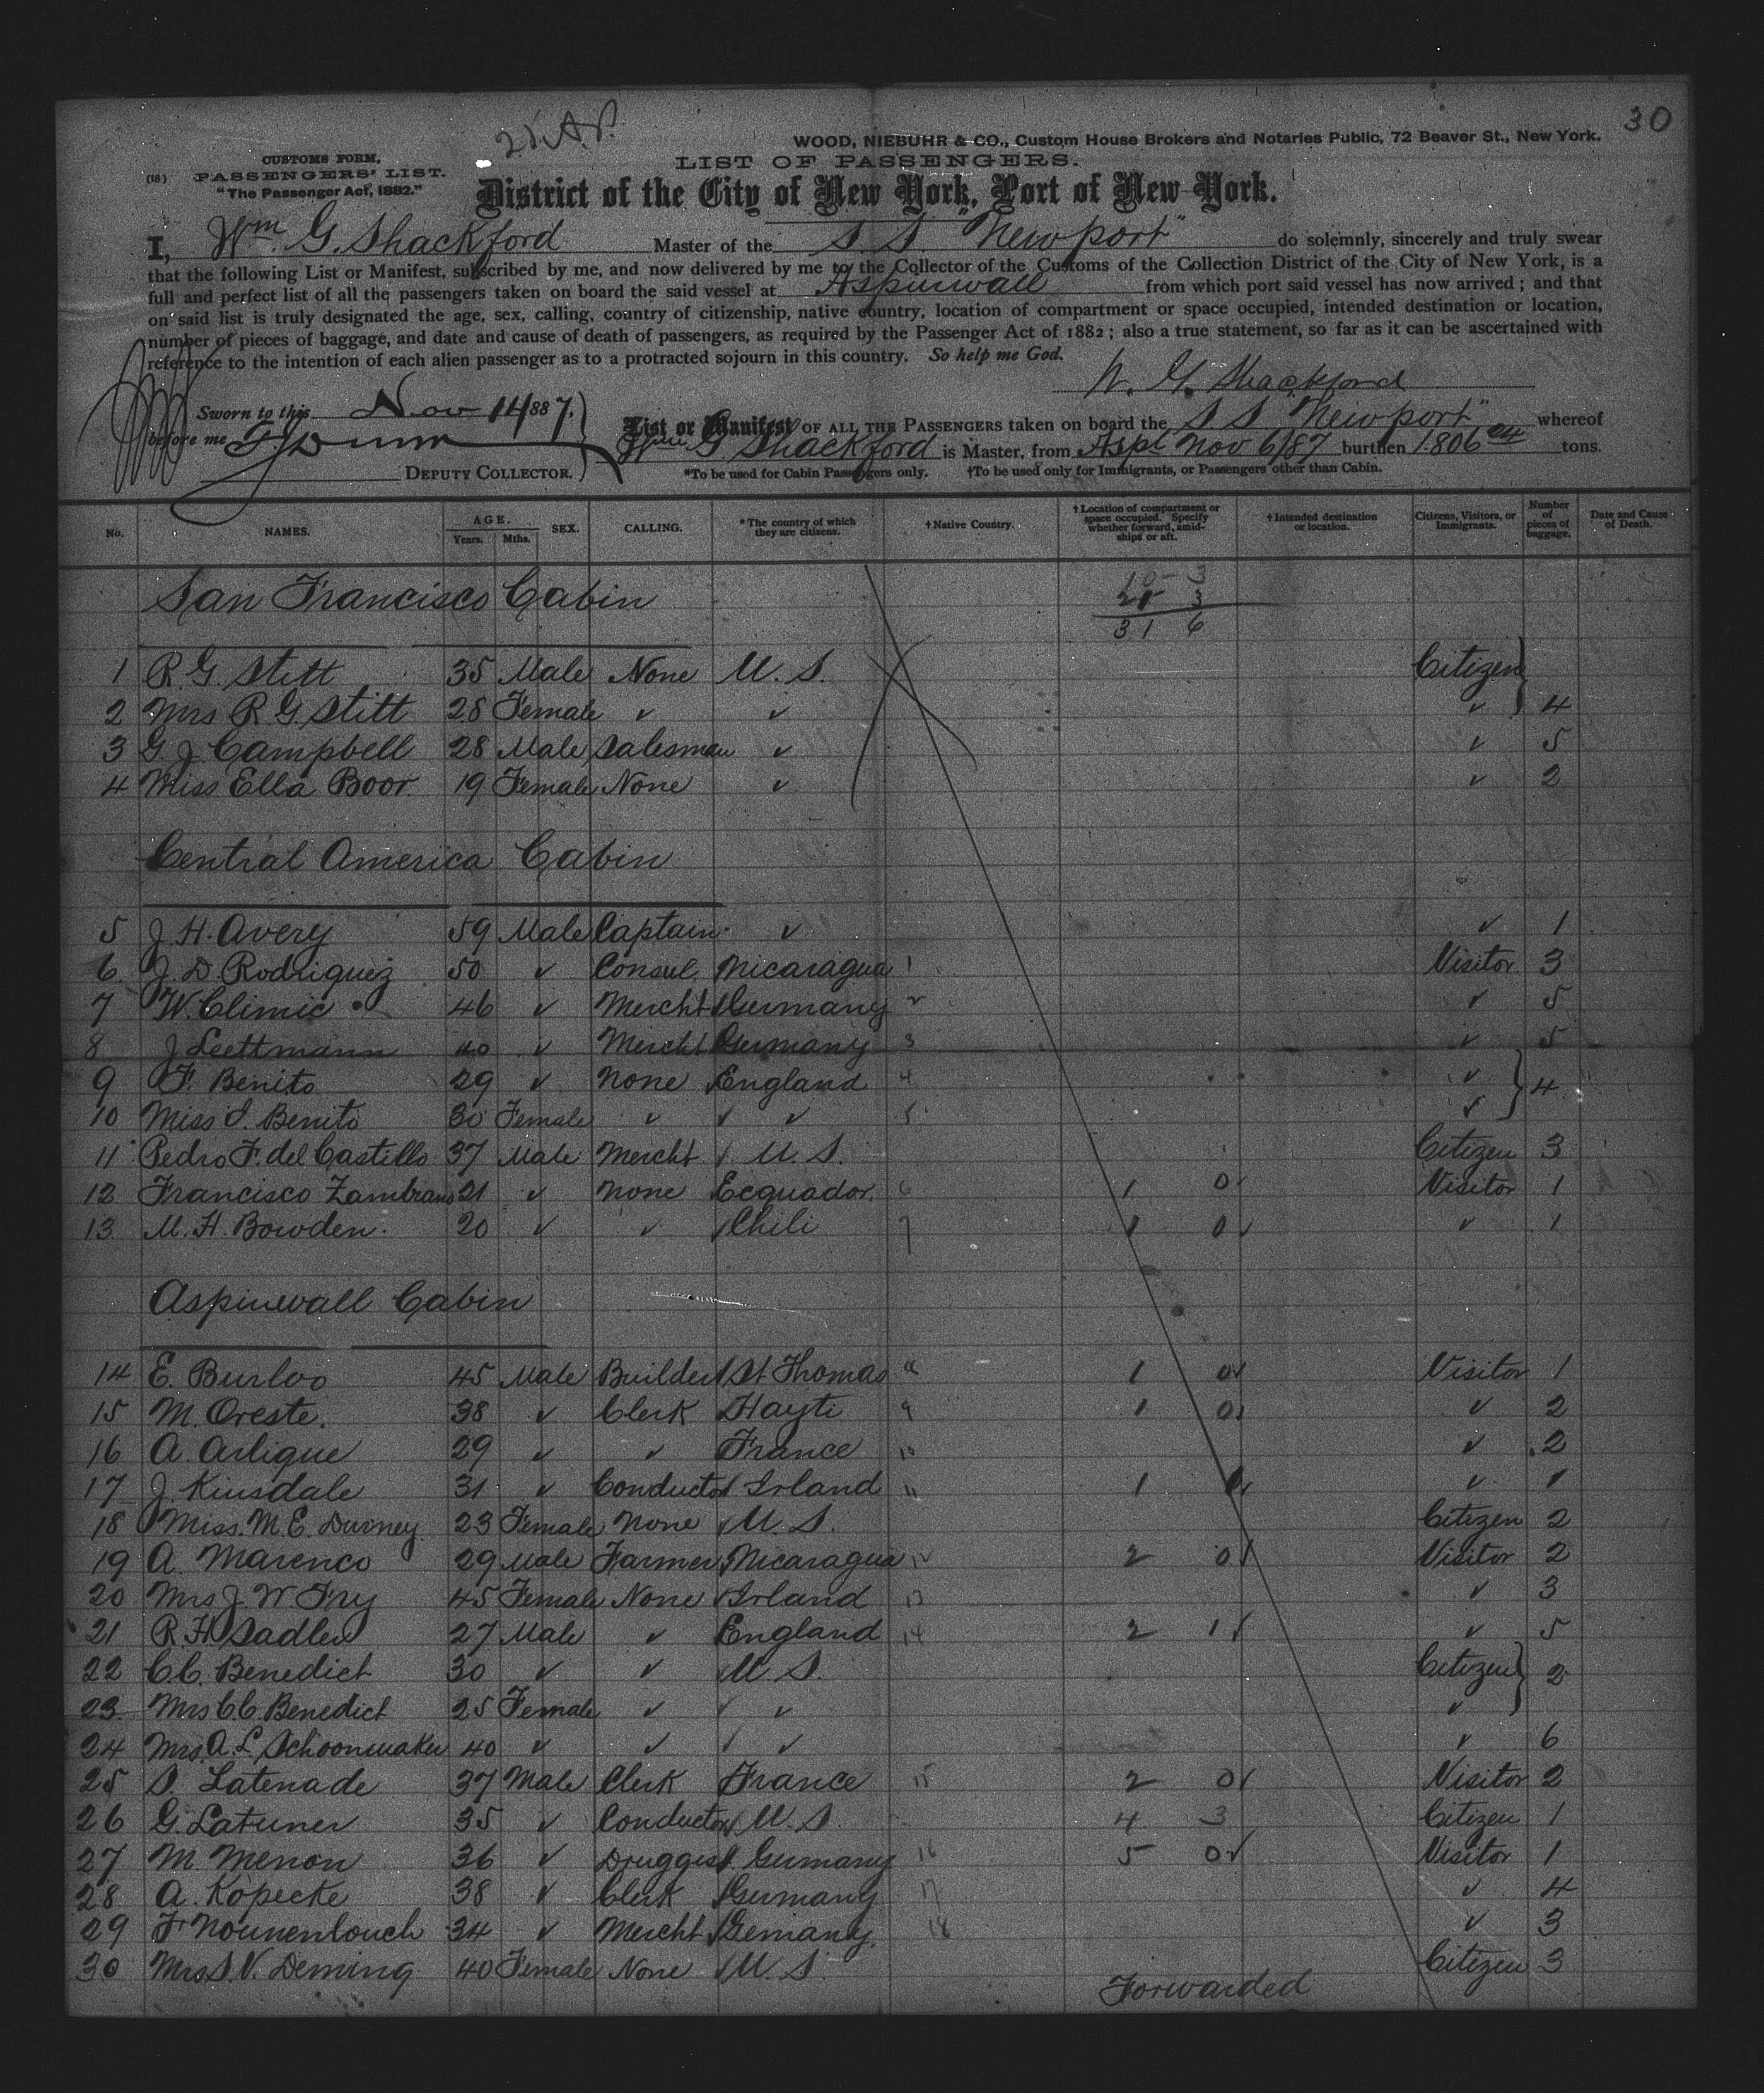 30
21. A.P.
WOOD, NIEBUHR & CO., Custom House Brokers and Notaries Public, 72 Beaver St., New York.
CUSTOMS FORM,
(18) PASSENGERS' LIST.
"The Passenger Act, 1882."
LIST OF PASSENGERS.
District of the City of New York, Port of New York.
I, Wm. G. Shackford Master of the S S "Newport" do solemnly, sincerely and truly swear
that the following List or Manifest, subscribed by me, and now delivered by me to the Collector of the Customs of the Collection District of the City of New York, is a
full and perfect list of all the passengers taken on board the said vessel at Aspinwall from which port said vessel has now arrived; and that
on said list is truly designated the age, sex, calling, country of citizenship, native country, location of compartment or space occupied, intended destination or location,
number of pieces of baggage, and date and cause of death of passengers, as required by the Passenger Act of 1882; also a true statement, so far as it can be ascertained with
reference to the intention of each alien passenger as to a protracted sojourn in this country. So help me God.
W. G. Shackford
Sworn to this Nov 14 1887.
before me
DEPUTY COLLECTOR.
List or Manifest OF ALL THE PASSENGERS taken on board the S S "Newport" whereof
Wm G Shackford is Master, from Aspl Nov 6/87 burthen 1806 tons.
*To be used for Cabin Passengers only. †To be used only for Immigrants, or Passengers other than Cabin.
No. NAMES. AGE. Years. Mths. SEX. CALLING. *The country of which they are citizens. †Native Country. †Location of compartment or space occupied. Specify whether forward, amidships or aft. †Intended destination or location. Citizens, Visitors, or Immigrants. Number of pieces of baggage. Date and Cause of Death.
San Francisco Cabin
31 6
1 R. G. Stitt 35 Male None U. S. Citizen
2 Mrs R. G. Stitt 28 Female ✓ ✓ ✓ 4
3 G. J. Campbell 28 Male Salesman ✓ ✓ 5
4 Miss Ella Boor 19 Female None ✓ ✓ 2
Central America Cabin
5 J. H. Avery 59 Male Captain ✓ ✓ 1
6 J. D. Rodriguez 50 ✓ Consul Nicaragua 1 Visitor 3
7 W. Climic 46 ✓ Mercht Germany 2 ✓ 5
8 J Leettmann 40 ✓ Mercht Germany 3 ✓ 5
9 F. Benito 29 ✓ None England 4 ✓
10 Miss I. Benito 30 Female ✓ ✓ 5 ✓ 4
11 Pedro F. del Castillo 37 Male Mercht U. S. Citizen 3
12 Francisco Zambrano 21 ✓ None Ecquador 6 1 0 Visitor 1
13 M. H. Bowden 20 ✓ ✓ Chili 7 1 0 ✓ 1
Aspinwall Cabin
14 E. Burloo 45 Male Builder St Thomas 8 1 0 Visitor 1
15 M. Oreste. 38 ✓ Clerk Hayti 9 1 0 ✓ 2
16 A. Arlique 29 ✓ ✓ France 10 ✓ 2
17 J. Kinsdale 31 ✓ Conductor Irland 11 1 ✓ 1
18 Miss. M. E. Durney 23 Female None U. S. Citizen 2
19 A. Marenco 29 Male Farmer Nicaragua 12 2 0 Visitor 2
20 Mrs J. W. Fry 45 Female None Irland 13 ✓ 3
21 R. H. Sadler 27 Male ✓ England 14 2 1 ✓ 5
22 C. C. Benedict 30 ✓ ✓ U. S. Citizen 2
23 Mrs C. C. Benedict 25 Female ✓ ✓ ✓
24 Mrs. A. L. Schoonmaker 40 ✓ ✓ ✓ ✓ 6
25 S. Latenade 37 Male Clerk France 15 2 0 Visitor 2
26 G. Latuner 35 ✓ Conductor U. S. 4 3 Citizen 1
27 M. Menon 36 ✓ Druggist Germany 16 5 0 Visitor 1
28 A. Kopecke 38 ✓ Clerk Germany 17 ✓ 4
29 F Nounenlouch 34 ✓ Mercht Germany 18 ✓ 3
30 Mrs S. V. Deming 40 Female None U. S. Citizen 3
Forwarded